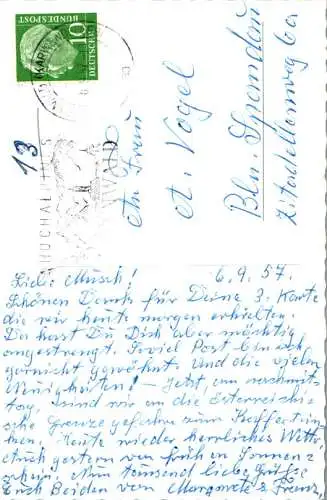 DEUTSCHE BUNDESPOST
10
13
An Frau
A. Vogel
Bln. Spandau
Zitadellenweg 6a
Liebe Musch! 6.9.57.
Schönen Dank für Deine 3. Karte
die wir heute morgen erhielten.
Da hast Du Dich aber mächtig
angestrengt. Soviel Post bin ich
garnicht gewöhnt. Und die vielen
Neuigkeiten! - Jetzt, am nachmit-
tag, sind wir an die österreichi-
sche Grenze gefahren zum Kaffeetrin-
ken. Heute wieder herrliches Wetter
Auch gestern von früh an Sonnen-
schein. Nun tausend liebe Grüße
Euch Beiden von Margarete & Franz